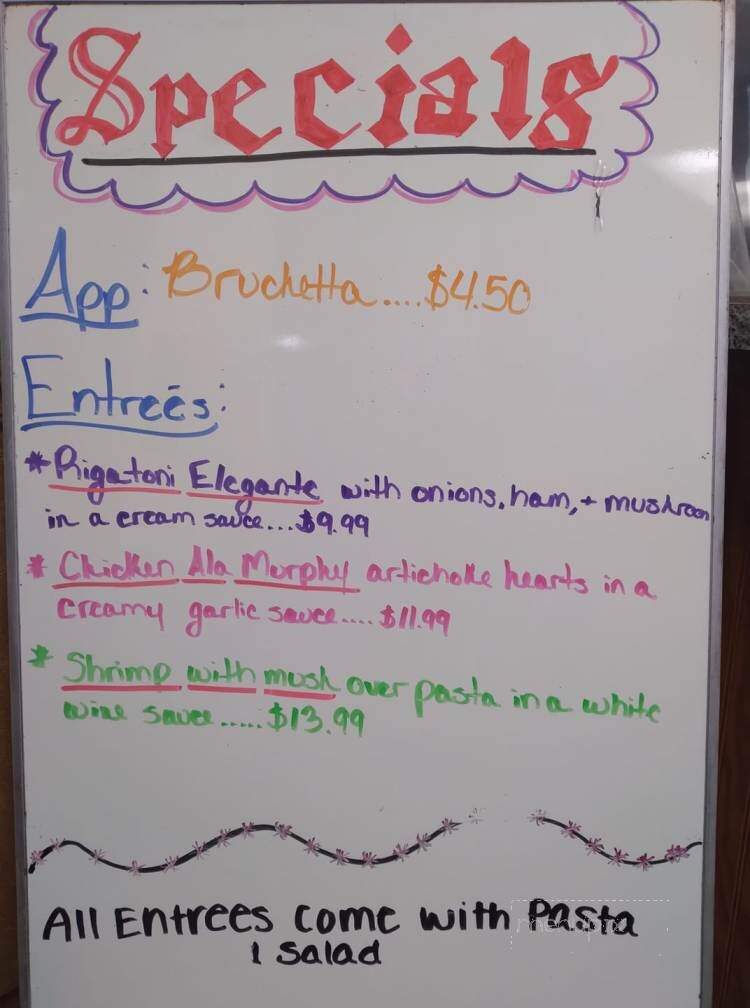 Specials
App: Bruchetta....$4.50
Entreés:
* Rigatoni Elegante with onions, ham, + mushroom
in a cream sauce...$9.99
* Chicken Ala Murphy artichoke hearts in a
creamy garlic sauce....$11.99
* Shrimp with mush over pasta in a white
wine sauce.....$13.99
All Entrees come with Pasta
1 Salad